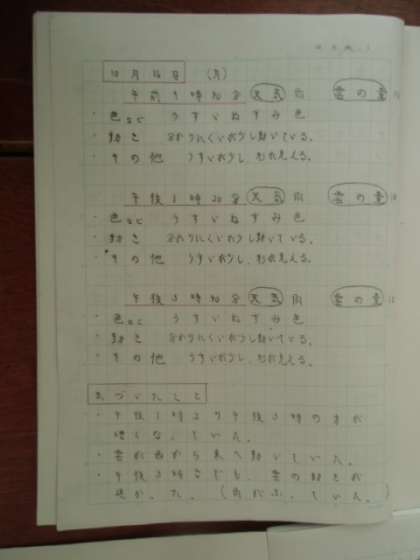 10月26日 (月)
午前9時20分 天気 雨 雲の量 10
・色など うすいねずみ色
・動き 分かりにくいが少し動いている。
・その他 うすいが少し、もれ見える。
午後1時20分 天気 雨 雲の量 10
・色など うすいねずみ色
・動き 分かりにくいが少し動いている。
・その他 うすいが少し、もれ見える。
午後3時20分 天気 雨 雲の量 10
・色など うすいねずみ色
・動き 分かりにくいが少し動いている。
・その他 うすいが少し、もれ見える。
気づいたこと
・午後1時より午後3時の方が
暗くなっていた。
・雲が西から東へ動いていた。
・午後3時ごろも、雲の動きが
速かった。(雨がふっていた。)